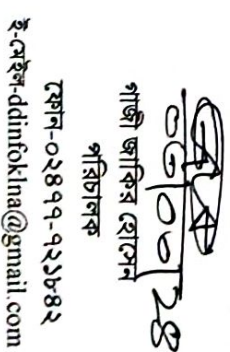 গাজী জাকির হোসেন
পরিচালক
ফোন-০২৪৭৭-৭২১৮৪২
ই-মেইল-ddinfoklna@gmail.com